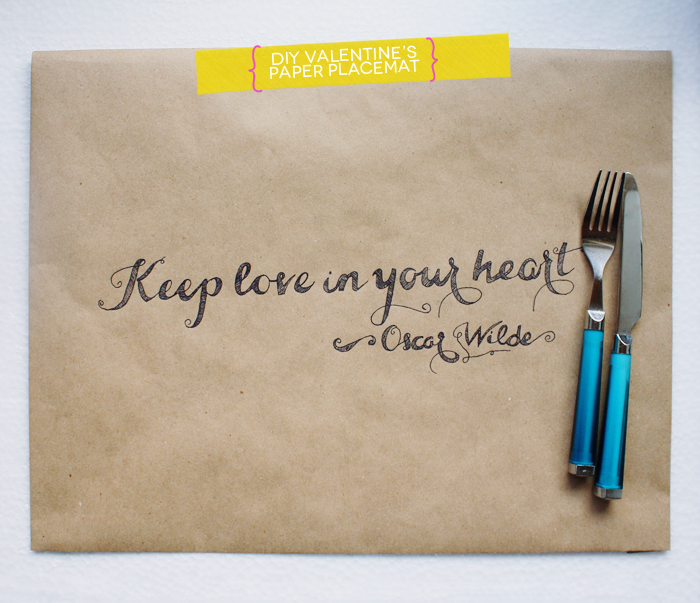 { DIY VALENTINE'S
PAPER PLACEMAT }
Keep love in your heart
~Oscar Wilde~